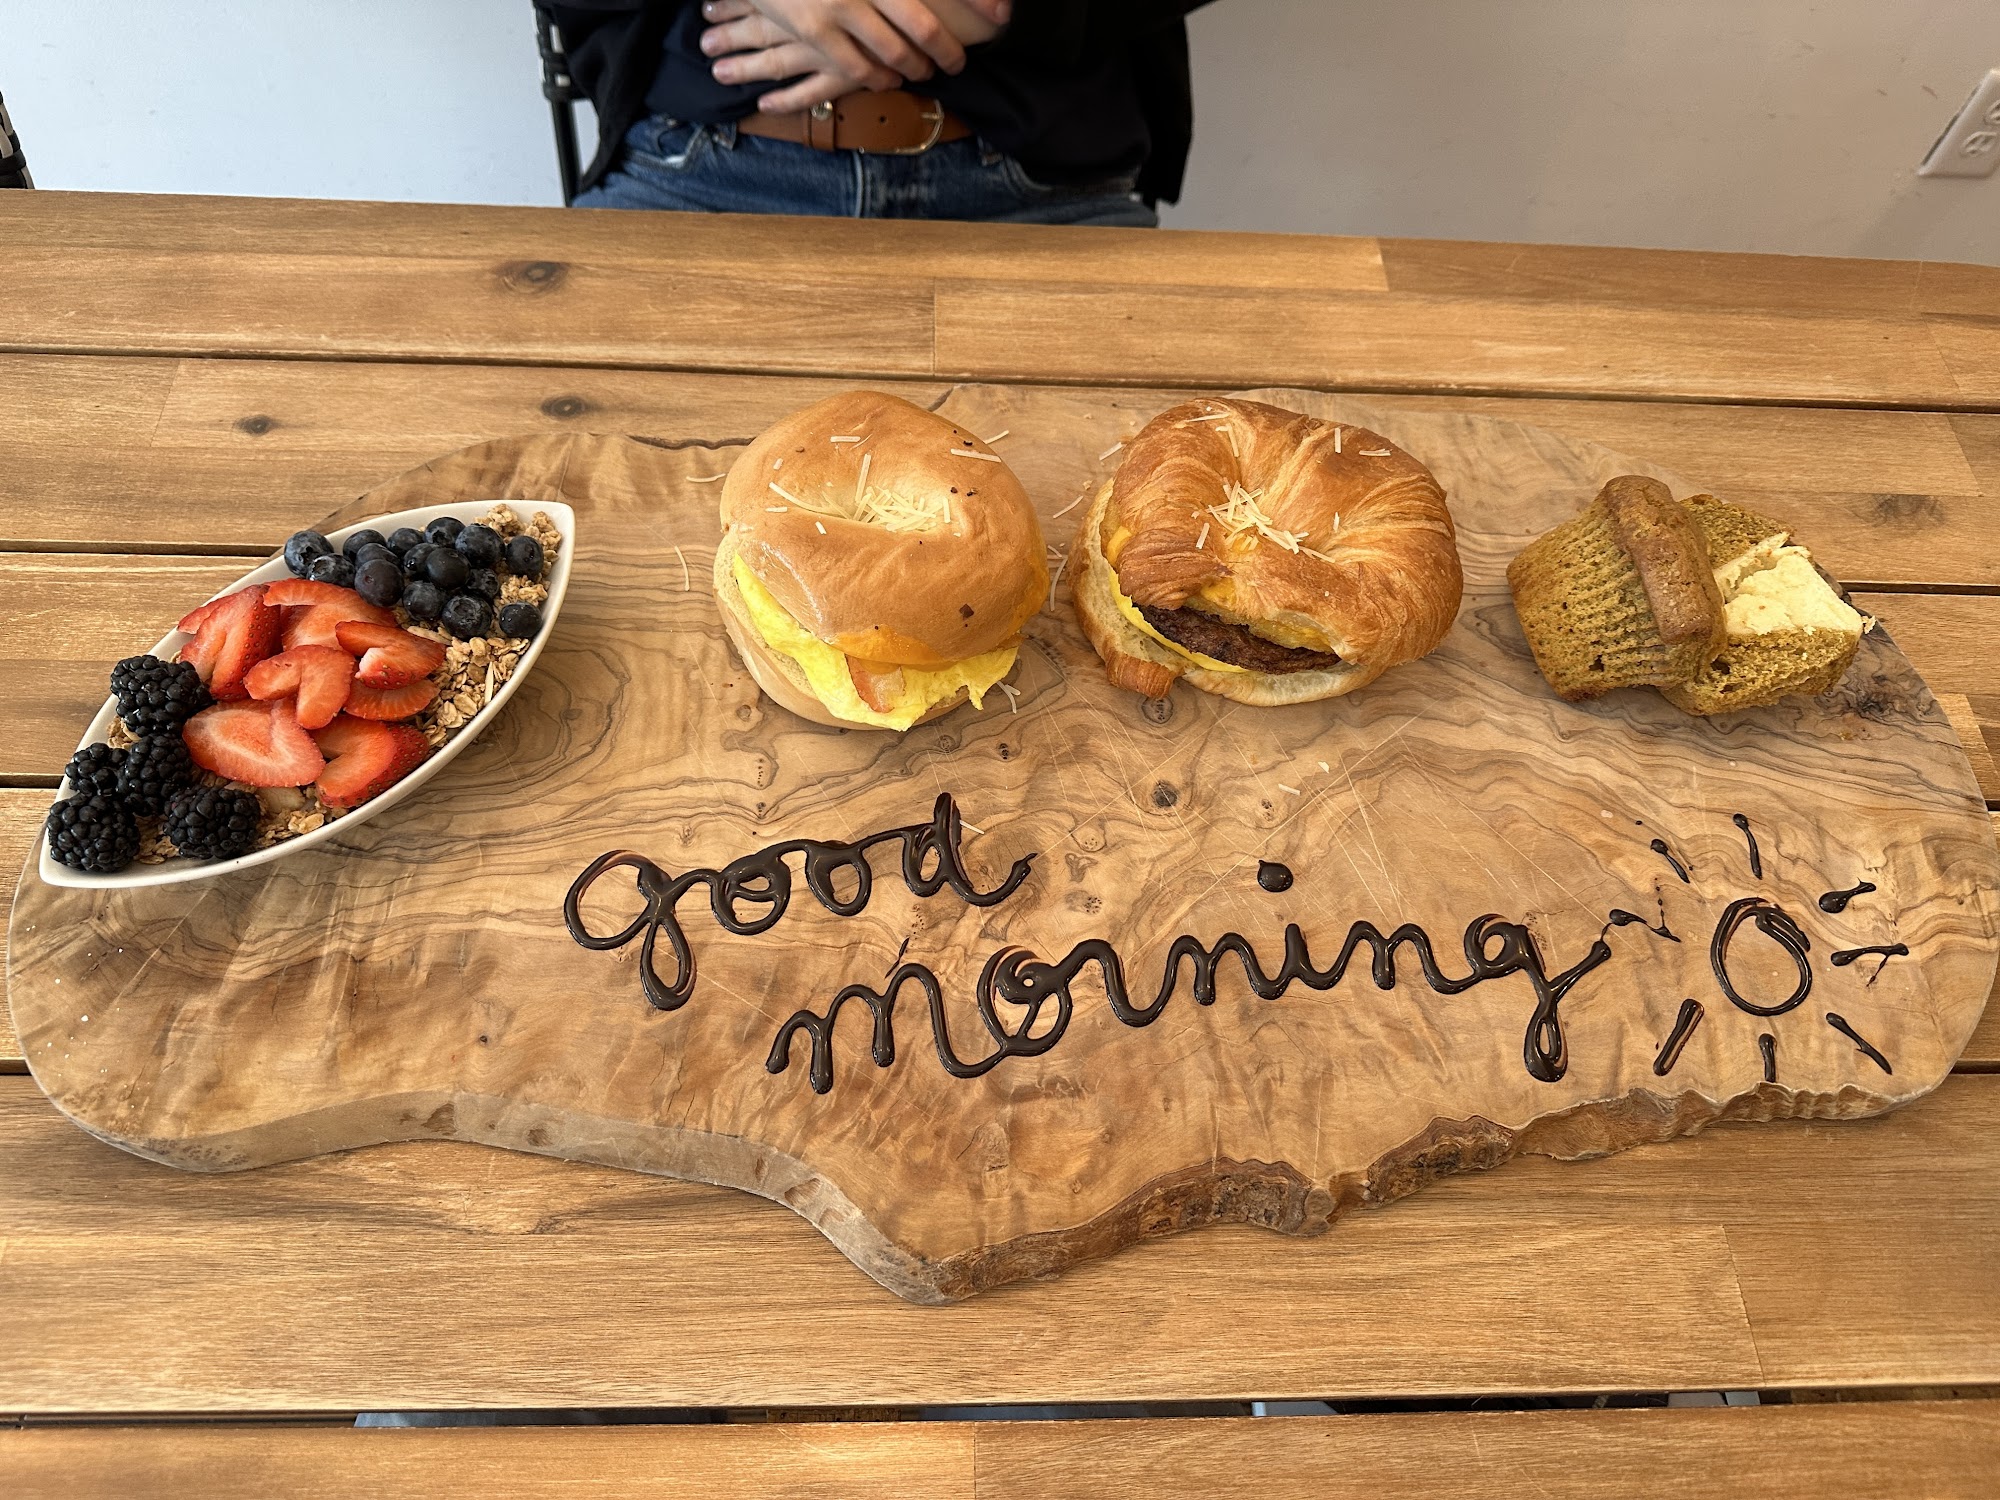 good
morning